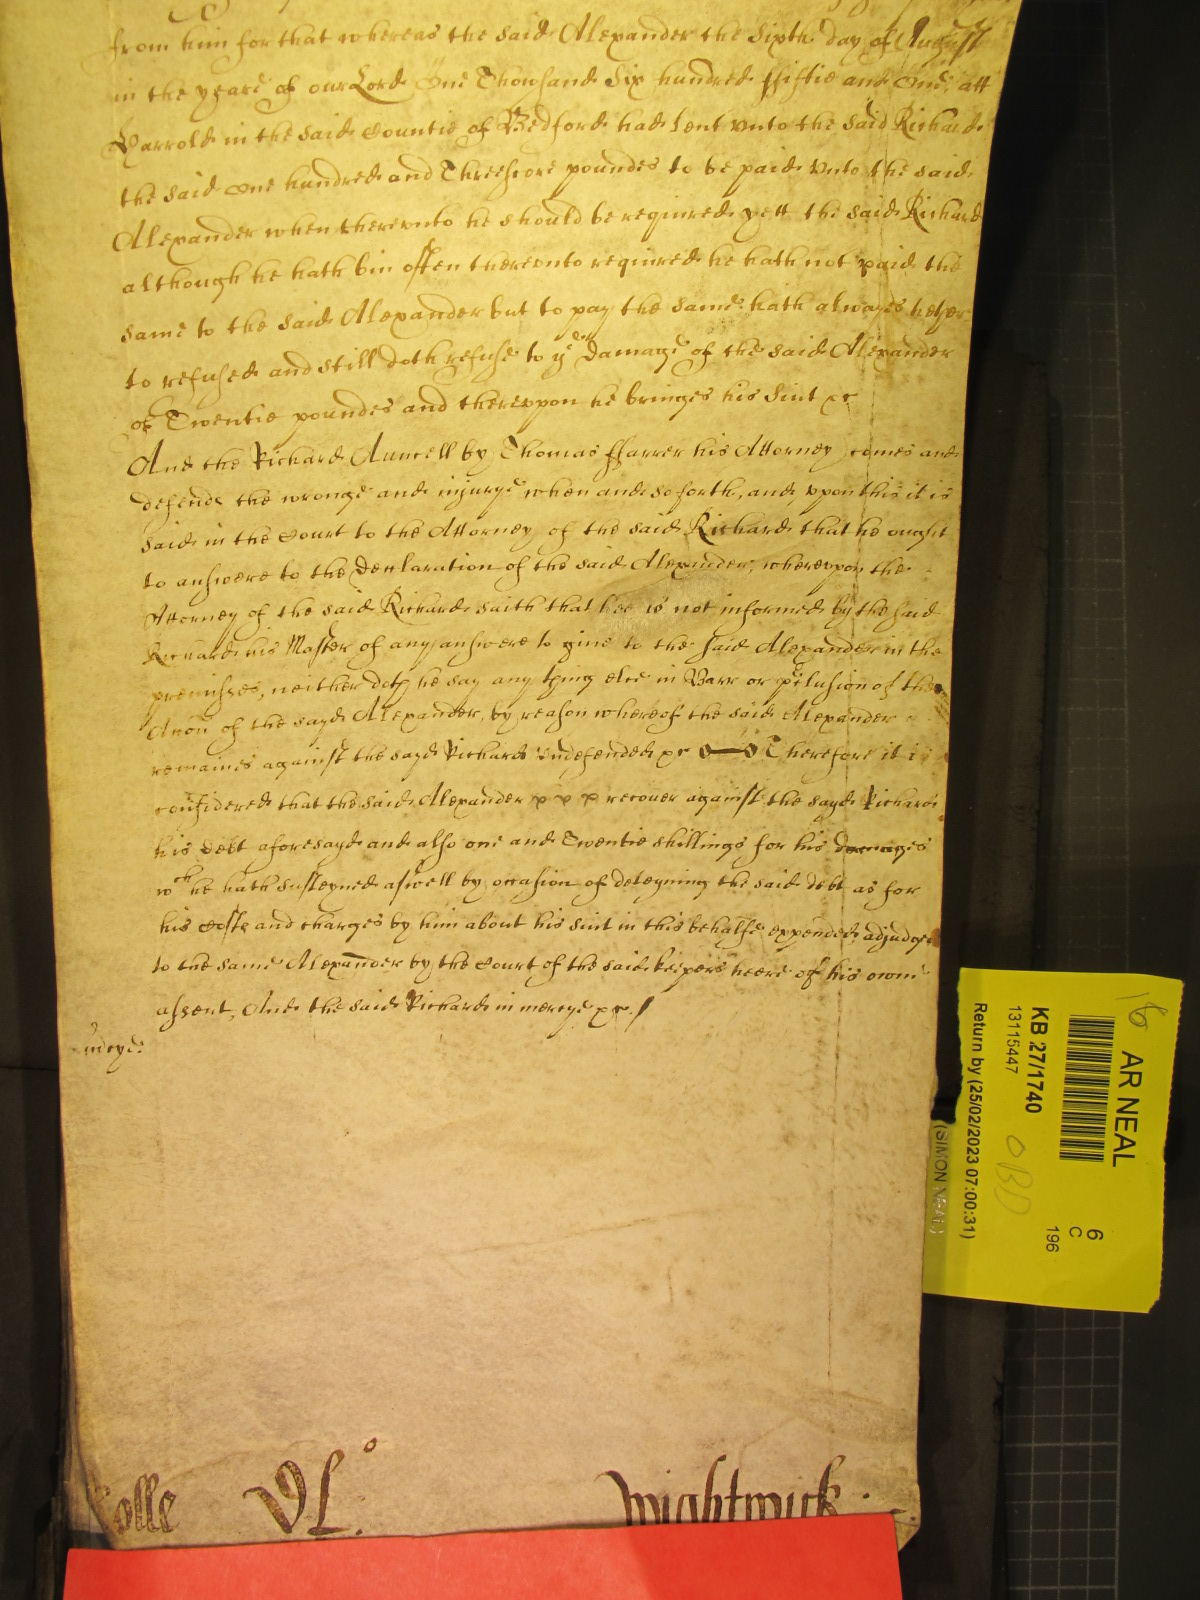 from him for that whereas the said Alexander the Sixth day of August
in the yeare of our Lord One Thousand Six hundred ffiftie and One att
Harrold in the said Countie of Bedford had lent vnto the said Richard
the said One hundred and Threescore poundes to be paid vnto the said
Alexander when therevnto he should be required yett the said Richard
although he hath bin often therevnto required he hath not paid the
same to the said Alexander but to pay the same hath alwayes hether
to refused and still doth refuse to ye damage of the said Alexander
of Twentie poundes and therevppon he bringes his Suit &c
And the Richard Auncell by Thomas ffarrer his Attorney comes and
defends the wronge and injurye when and so forth, and vppon this it is
said in the Court to the Attorney of the said Richard that he ought
to answere to the Declaration of the said Alexander, wherevppon the
Attorney of the said Richard saith that hee is not informed by the said
Richard his Master of any answere to giue to the said Alexander in the
premisses, neither doth he say any thing else in Barr or p'clusion of the
Accōn of the sayd Alexander, by reason whereof the said Alexander
remaines against the sayd Richard vndefended &c Therefore it is
considered that the said Alexander recouer against the sayd Richard
his debt aforesayd and also one and Twentie shillings for his damages
wch he hath susteyned aswell by occasion of deteyning the said debt as for
his Costs and charges by him about his suit in this behalfe expended adjudged
to the same Alexander by the Court of the said keepers heere of his owne
assent, And the said Richard in mercye &c
Wightwick
16
AR NEAL
KB 27/1740
13115447
Return by (25/02/2023 07:00:31)
OBD
6
C
196
(SIMON NEAL)